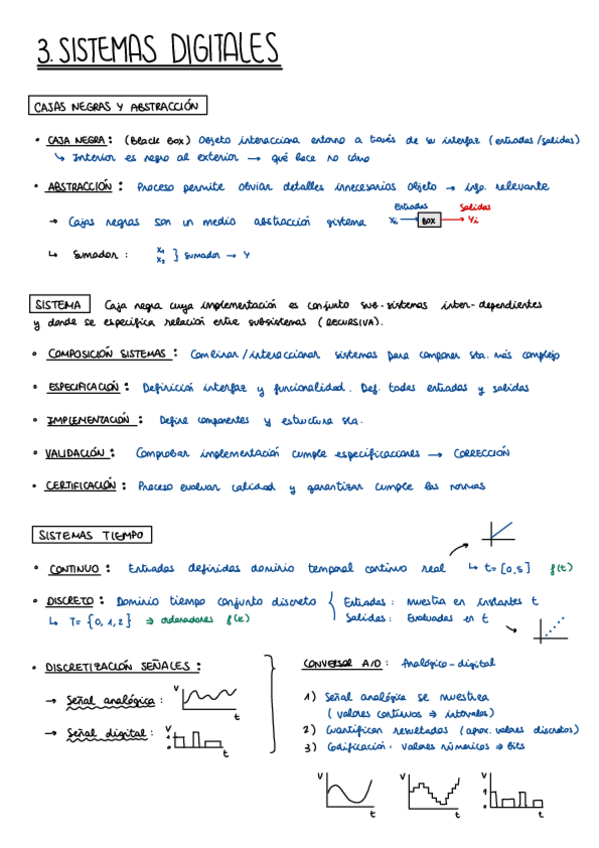 3. SISTEMAS DIGITALES
CAJAS NEGRAS Y ABSTRACCIÓN
• CAJA NEGRA: (Black Box) Objeto interacciona entorno a través de su interfaz (entradas/salidas)
↳ Interior es negro al exterior → qué hace no cómo
• ABSTRACCIÓN: Proceso permite obviar detalles innecesarios objeto → info. relevante
→ Cajas negras son un medio abstracción sistema
Entradas Salidas
Xi → BOX → Yi
↳ Sumador: X1 X2 } sumador → Y
SISTEMA Caja negra cuya implementación es conjunto sub-sistemas inter-dependientes
y donde se especifica relación entre subsistemas (RECURSIVA).
• COMPOSICIÓN SISTEMAS: Combinar/interaccionar sistemas para componer sta. más complejo
• ESPECIFICACIÓN: Definición interfaz y funcionalidad. Def. todas entradas y salidas
• IMPLEMENTACIÓN: Define componentes y estructura sta.
• VALIDACIÓN: Comprobar implementación cumple especificaciones → CORRECCIÓN
• CERTIFICACIÓN: Proceso evaluar calidad y garantizar cumple las normas
SISTEMAS TIEMPO
• CONTINUO: Entradas definidas dominio temporal continuo real ↳ t=[0,5] f(t)
• DISCRETO: Dominio tiempo conjunto discreto { Entradas: muestra en instantes t
↳ T= {0,1,2} ⇒ ordenadores f(k) Salidas: Evaluadas en t
• DISCRETIZACIÓN SEÑALES:
→ Señal analógica: V t
→ Señal digital: V 1 0 t
CONVERSOR A/D: Analógico-digital
1) Señal analógica se muestrea
(valores continuos ⇒ intervalos)
2) Cuantifican resultados (aprox. valores discretos)
3) Codificación: valores númericos ⇒ bits
V t V t V 1 0 t